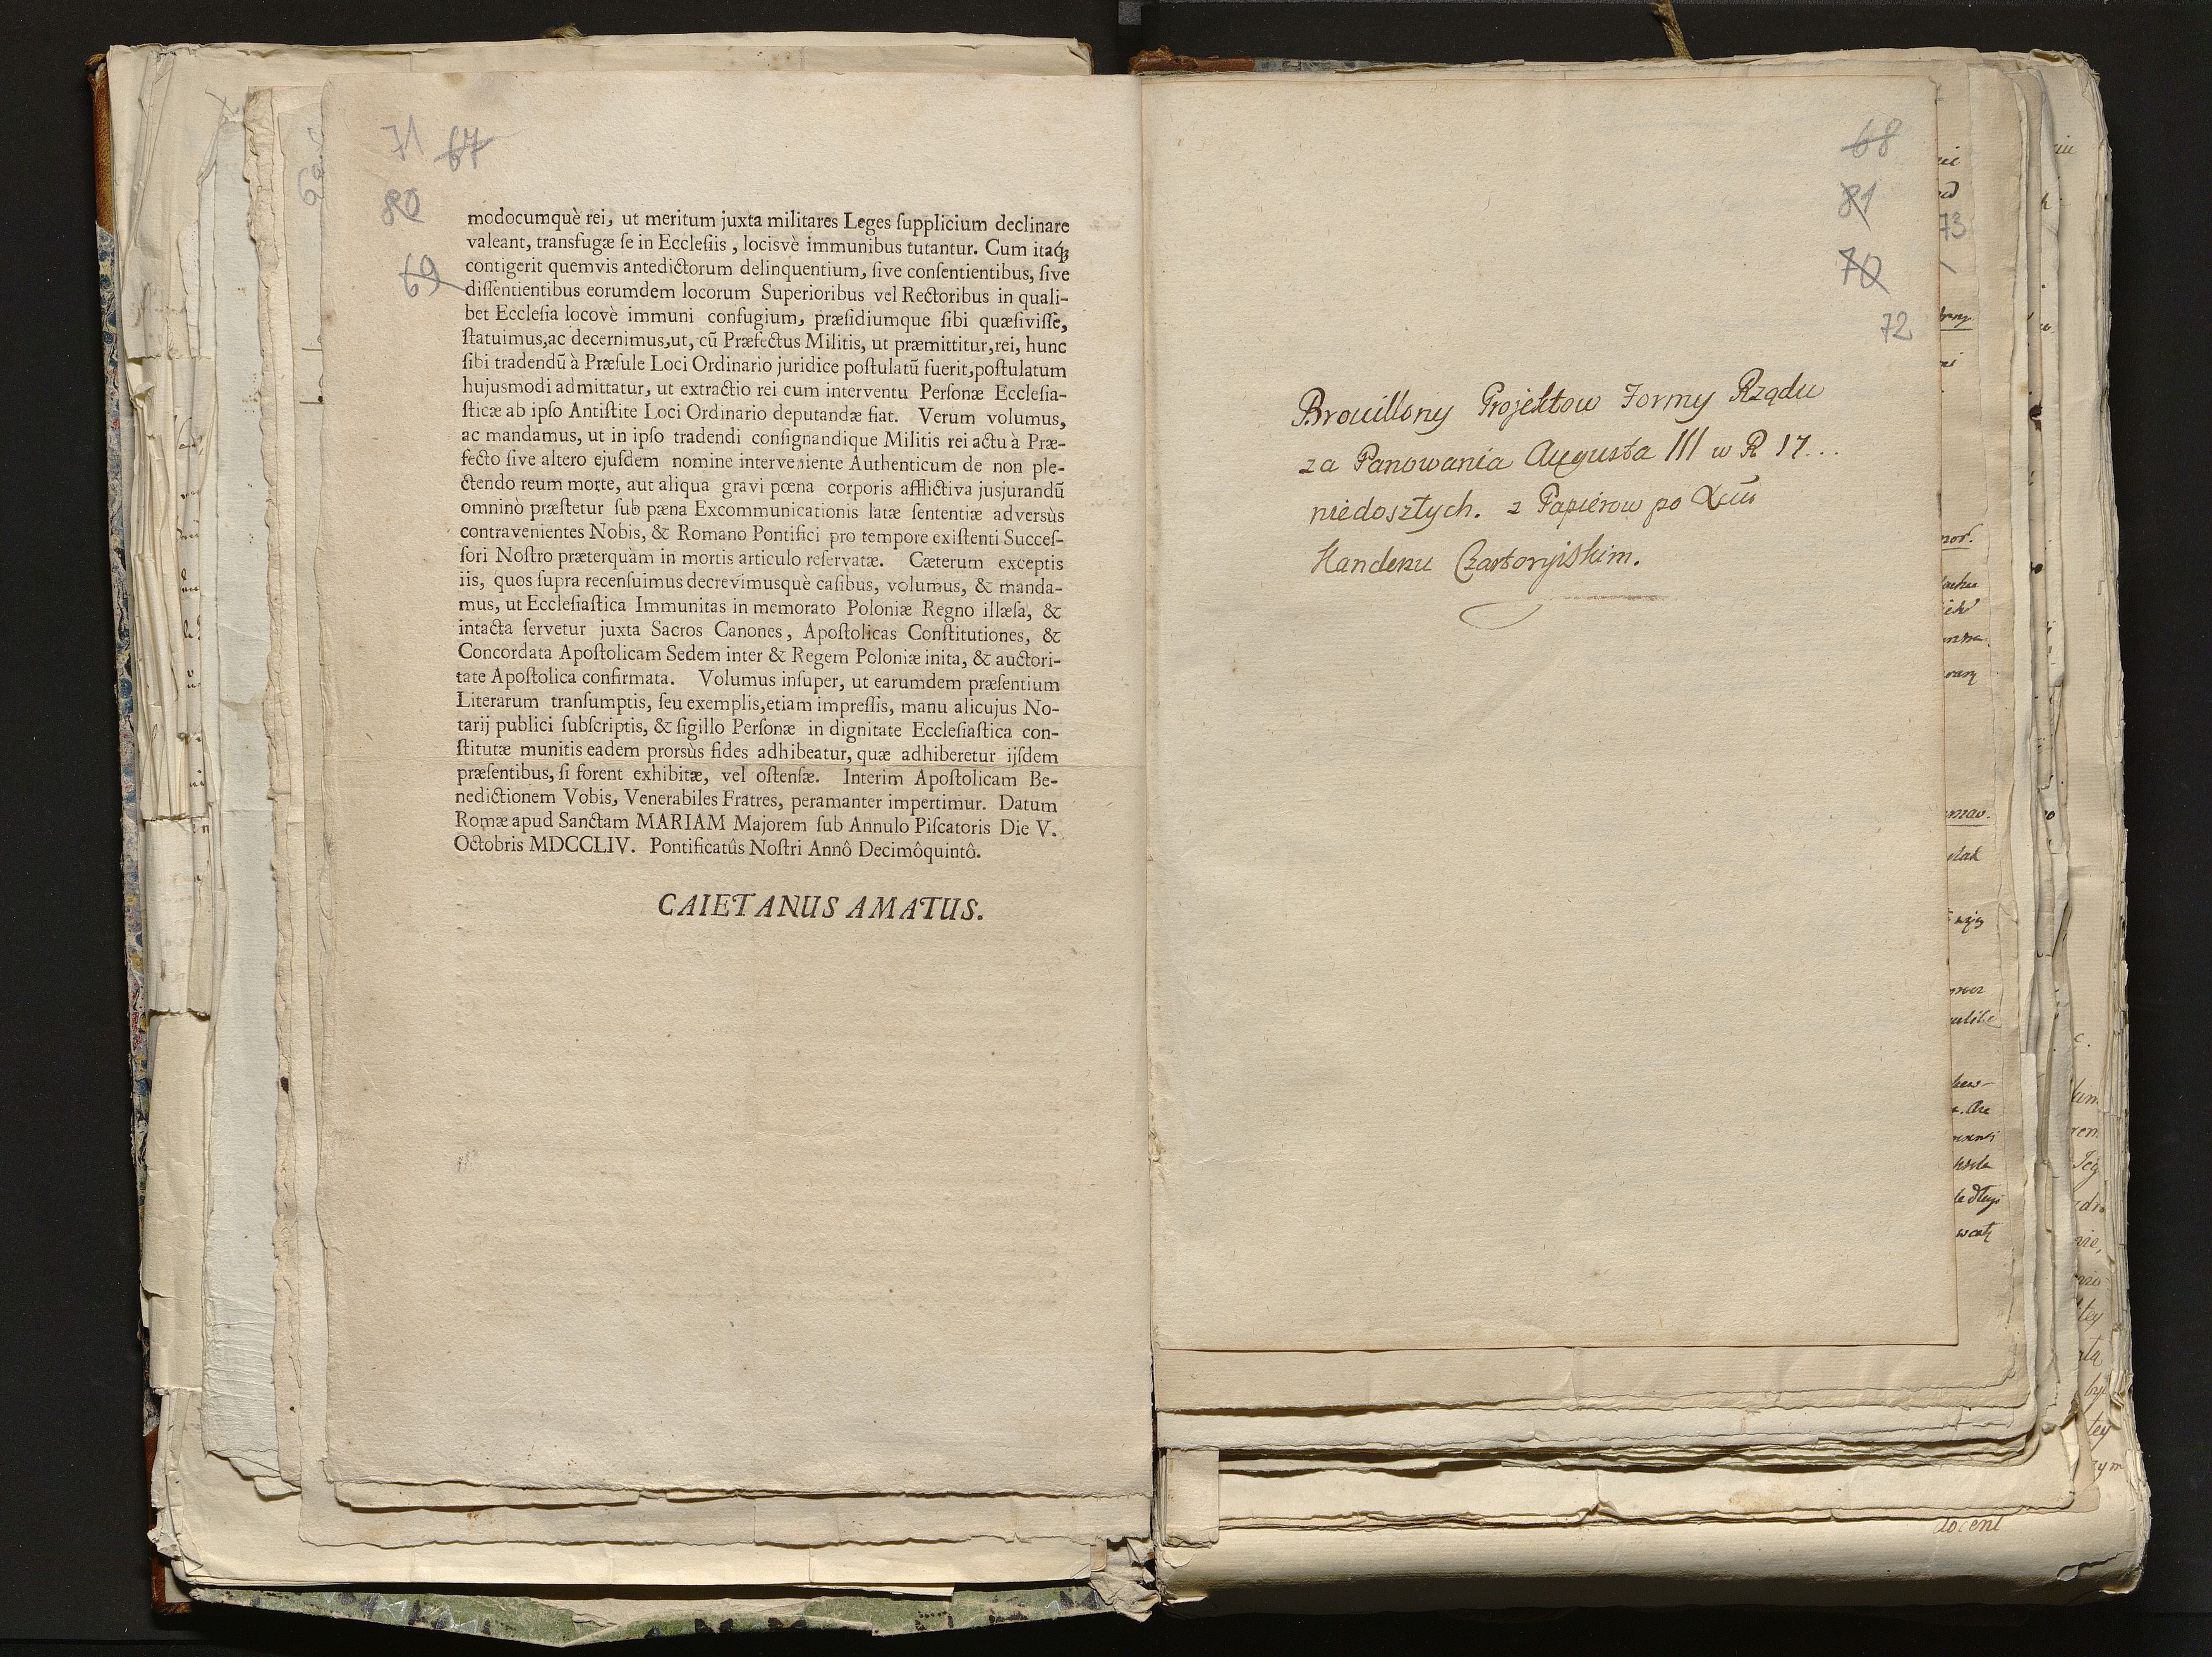 71 67
80
69
modocumquè rei, ut meritum juxta militares Leges ſupplicium declinare
valeant, transfugæ ſe in Eccleſiis, locisvè immunibus tutantur. Cum itaq́;
contigerit quemvis antedictorum delinquentium, ſive conſentientibus, ſive
diſſentientibus eorumdem locorum Superioribus vel Rectoribus in quali-
bet Eccleſia locovè immuni confugium, præſidiumque ſibi quæſiviſſe,
ſtatuimus, ac decernimus, ut, cũ Præfectus Militis, ut præmittitur, rei, hunc
ſibi tradendũ à Præſule Loci Ordinario juridice poſtulatũ fuerit, poſtulatum
hujusmodi admittatur, ut extractio rei cum interventu Perſonæ Eccleſia-
ſticæ ab ipſo Antiſtite Loci Ordinario deputandæ fiat. Verum volumus,
ac mandamus, ut in ipſo tradendi conſignandique Militis rei actu à Præ-
fecto ſive altero ejuſdem nomine interveniente Authenticum de non ple-
ctendo reum morte, aut aliqua gravi pœna corporis afflictiva jusjurandũ
omninò præſtetur ſub pæna Excommunicationis latæ ſententiæ adversùs
contravenientes Nobis, & Romano Pontifici pro tempore exiſtenti Succeſ-
ſori Noſtro præterquàm in mortis articulo reſervatæ. Cæterum exceptis
iis, quos ſupra recenſuimus decrevimusquè caſibus, volumus, & manda-
mus, ut Eccleſiaſtica Immunitas in memorato Poloniæ Regno illæſa, &
intacta ſervetur juxta Sacros Canones, Apoſtolicas Conſtitutiones, &
Concordata Apoſtolicam Sedem inter & Regem Poloniæ inita, & auctori-
tate Apoſtolica confirmata. Volumus inſuper, ut earumdem præſentium
Literarum tranſumptis, ſeu exemplis, etiam impreſſis, manu alicujus No-
tarij publici ſubſcriptis, & ſigillo Perſonæ in dignitate Eccleſiaſtica con-
ſtitutæ munitis eadem prorsùs fides adhibeatur, quæ adhiberetur ijſdem
præſentibus, ſi forent exhibitæ, vel oſtenſæ. Interim Apoſtolicam Be-
nedictionem Vobis, Venerabiles Fratres, peramanter impertimur. Datum
Romæ apud Sanctam MARIAM Majorem ſub Annulo Piſcatoris Die V.
Octobris MDCCLIV. Pontificatûs Noſtri Annô Decimôquintô.
CAIETANUS AMATUS.
68
81
70
72
Brouillony Projektow Formy Rządu
za Panowania Augusta III w R 17...
niedoszłych. z Papierow po
Kanclerzu Czartoryiskim.
73
docent